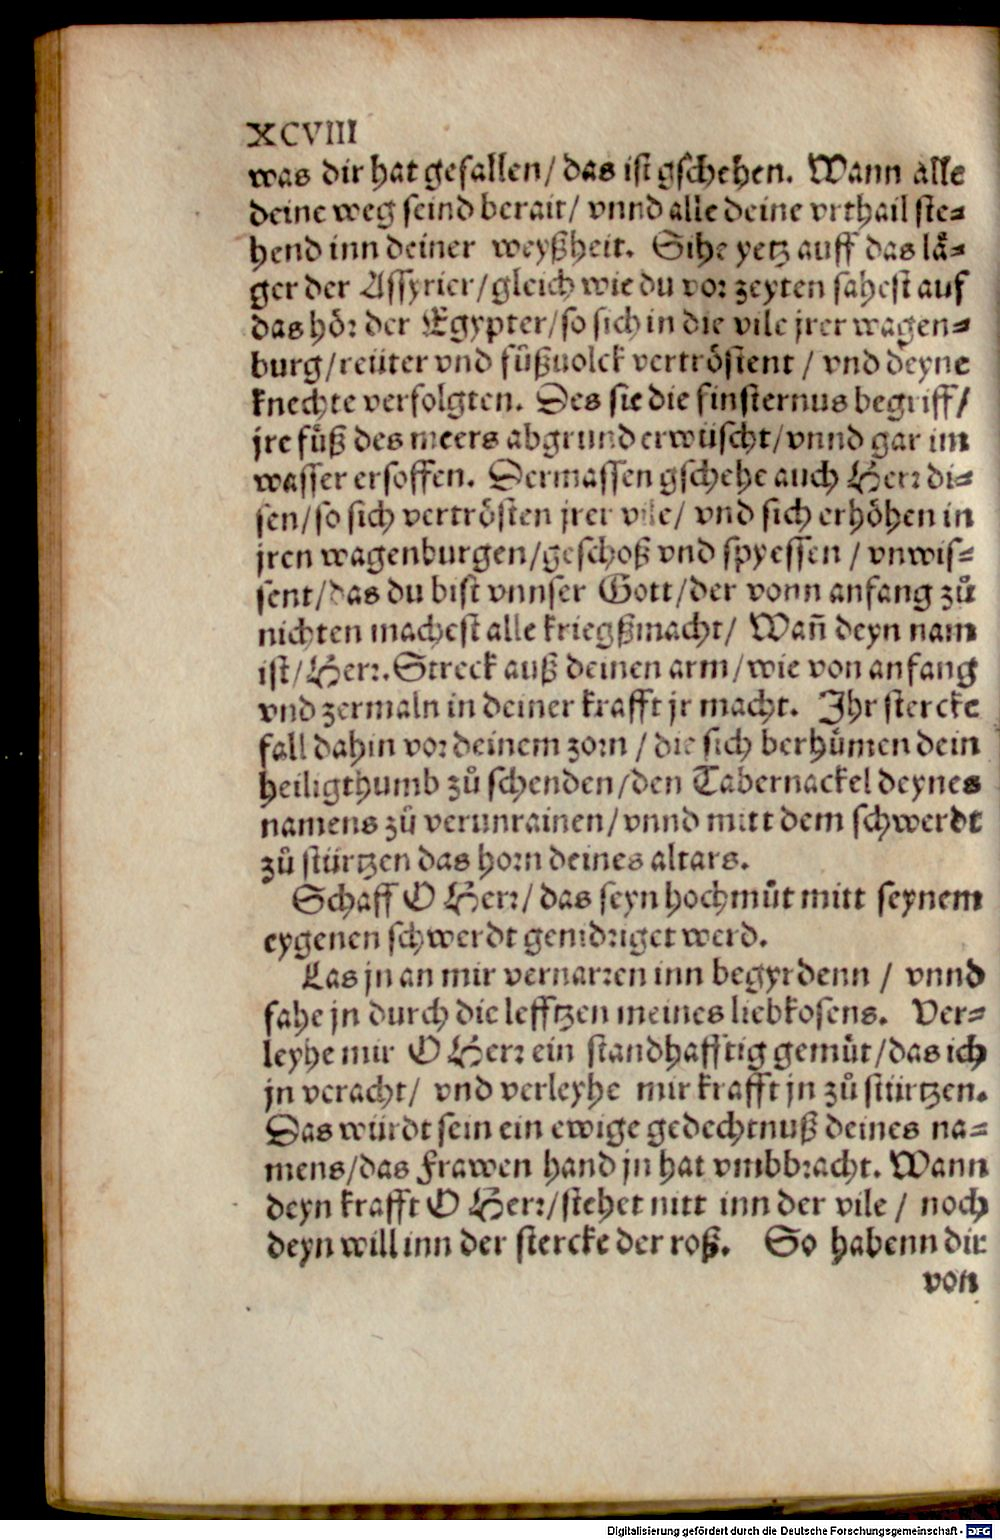 XCVIII
was dir hat gefallen/ das ist gschehen. Wann alle
deine weg seind berait/ vnnd alle deine vrthail ste-
hend inn deiner weyßheit. Sihe yetz auff das lå-
ger der Assyrier/gleich wie du vor zeyten sahest auf
das hör der Egypter/so sich in die vile jrer wagen-
burg/reüter vnd fůßuolck vertröstent / vnd deyne
knechte verfolgten. Des sie die finsternus begriff/
jre fůß des meers abgrund erwüscht/vnnd gar im
wasser ersoffen. Dermassen gschehe auch Herr di-
sen/so sich vertrösten jrer vile/ vnd sich erhöhen in
jren wagenburgen/geschoß vnd spyessen / vnwis-
sent/das du bist vnnser Gott/der vonn anfang zů
nichten machest alle kriegßmacht/ Wañ deyn nam
ist/Herr. Streck auß deinen arm/wie von anfang
vnd zermaln in deiner krafft jr macht. Ihr stercke
fall dahin vor deinem zorn / die sich berhůmen dein
heiligthumb zů schenden/den Tabernackel deynes
namens zů verunrainen/vnnd mitt dem schwerdt
zů stürtzen das horn deines altars.
Schaff O Herr/ das seyn hochmůt mitt seynem
eygenen schwerdt genidriget werd.
Las jn an mir vernarren inn begyrdenn / vnnd
fahe jn durch die lefftzen meines liebkosens. Ver-
leyhe mir O Herr ein standhafftig gemůt/das ich
jn veracht/ vnd verleyhe mir krafft jn zů stürtzen.
Das würdt sein ein ewige gedechtnuß deines na-
mens/das Frawen hand jn hat vmbbracht. Wann
deyn krafft O Herr/stehet nitt inn der vile / noch
deyn will inn der stercke der roß. So habenn dir
von
Digitalisierung gefördert durch die Deutsche Forschungsgemeinschaft - DFG